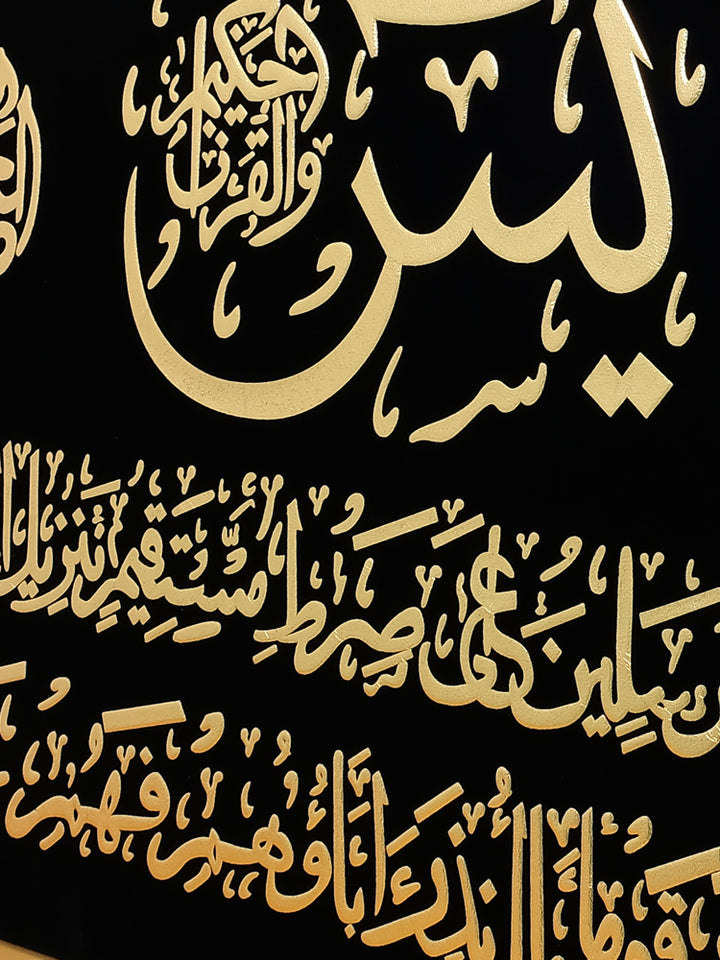 يس
والقرآن الحكيم
رسلين على صرط مستقيم تنزيل
قوما أنذر ءاباؤهم فهم